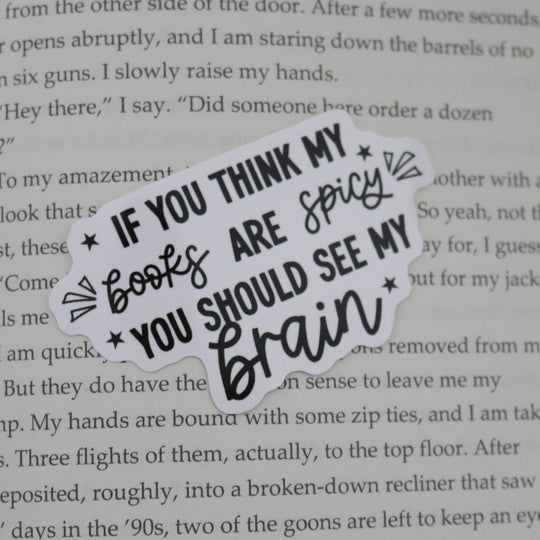 from the other side of the door. After a few more seconds,
r opens abruptly, and I am staring down the barrels of no
n six guns. I slowly raise my hands.
"Hey there," I say. "Did someone here order a dozen
?"
To my amazement
other with a
look that s
So yeah, not th
st, these
ay for, I guess
"Come
out for my jack
ls me
I am quick
ons removed from m
But they do have the
on sense to leave me my
np. My hands are bound with some zip ties, and I am tak
s. Three flights of them, actually, to the top floor. After
eposited, roughly, into a broken-down recliner that saw
' days in the '90s, two of the goons are left to keep an eye
IF YOU THINK MY
books ARE spicy
YOU SHOULD SEE MY
brain